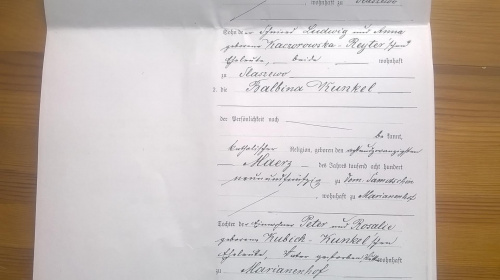 wohnhaft
zu Staszewo
Sohn der Schmied Ludwig und Anna
geborene Kaczorowska-Reyter'schen
Eheleute, beide, wohnhaft
zu Staszewo
2. die Balbina Kunkel
der Persönlichkeit nach
be kannt,
katholischer Religion, geboren den achtundzwanzigsten
Maerz des Jahres tausend acht hundert
neunundfünfzig zu dem
, wohnhaft zu Marianenhof
Tochter der Einwohner Peter und Rosalie
geborene Kubick-Kunkel'schen
Eheleute, Vater gestorben, wohnhaft
zu Marianenhof